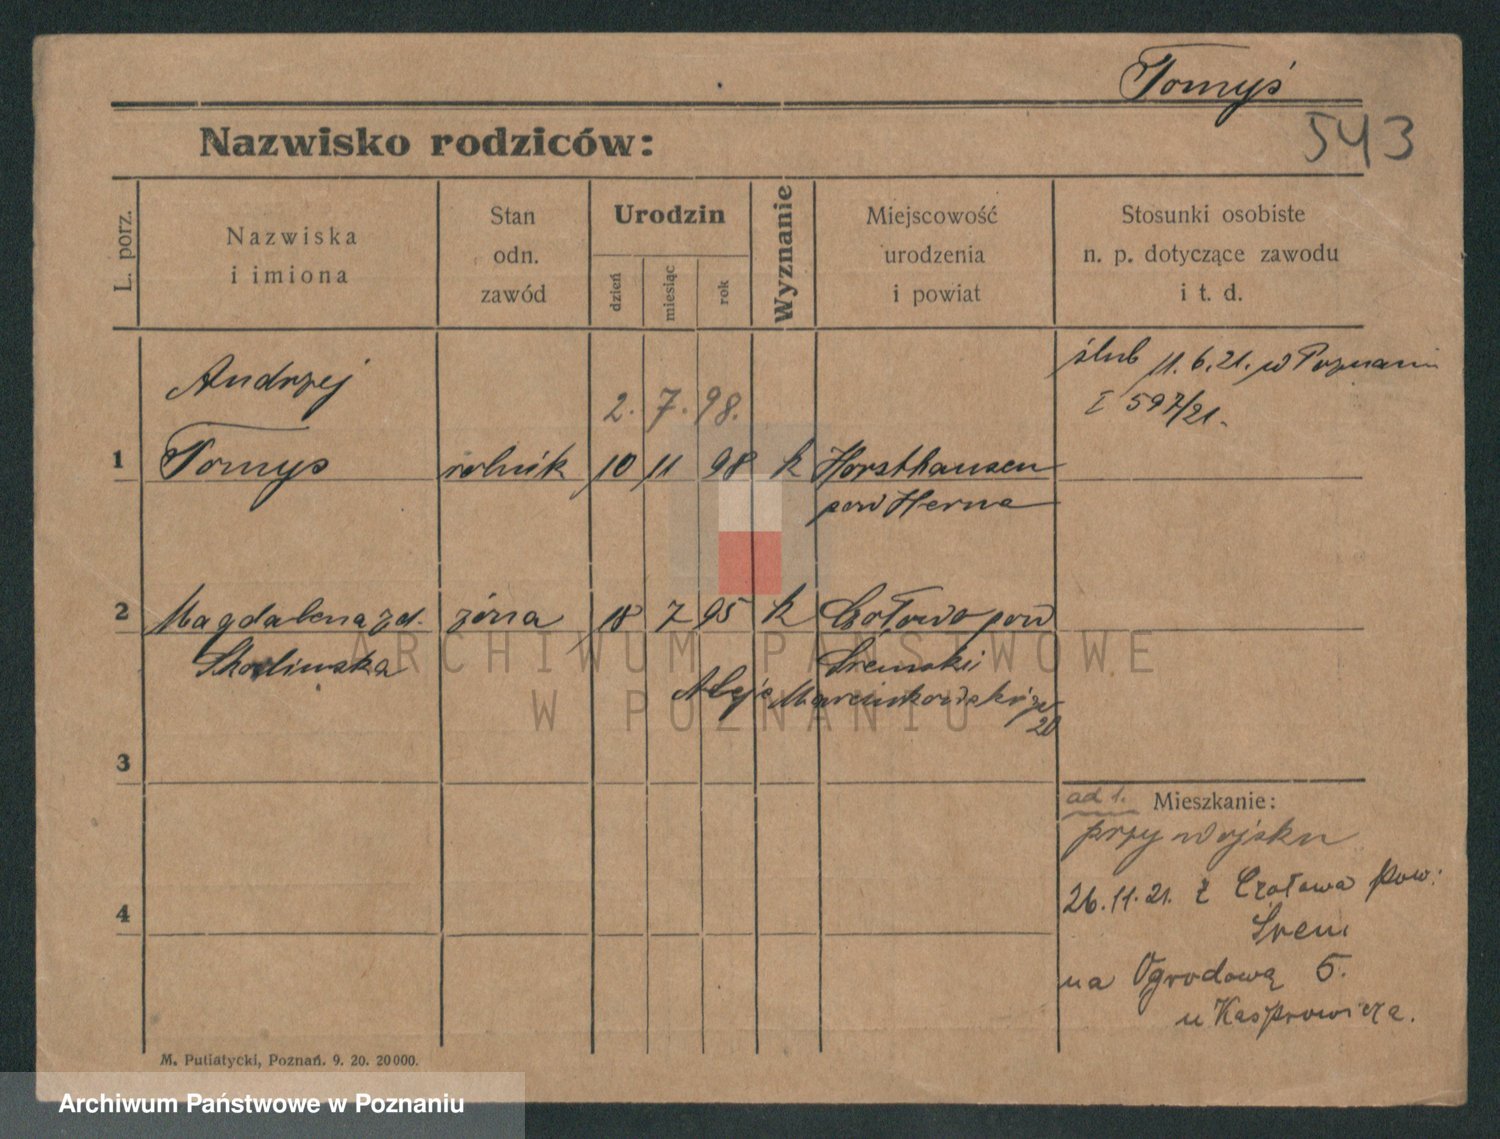 Tomyś
543
Nazwisko rodziców:
L. porz.
Nazwiska
i imiona
Stan
odn.
zawód
Urodzin
dzień
miesiąc
rok
Wyznanie
Miejscowość
urodzenia
i powiat
Stosunki osobiste
n. p. dotyczące zawodu
i t. d.
Andrzej
2. 7. 98.
ślub 11. 6. 21. w Poznaniu
I 597/21.
1 Tomyś rolnik 10 11 98 k Horsthausen
pow Herne
2 Magdalena zd. żona 18 7 95 k Czołowo pow
Śremski
Aleje Marcinkowskiego
20
3
ad 1. Mieszkanie:
przy wojsku
26.11.21. z Czołowa pow:
Śrem
4
na Ogrodową 5.
u Kasprowicza.
M. Putiatycki, Poznań. 9. 20. 20000.
ARCHIWUM PAŃSTWOWE
W POZNANIU
Archiwum Państwowe w Poznaniu